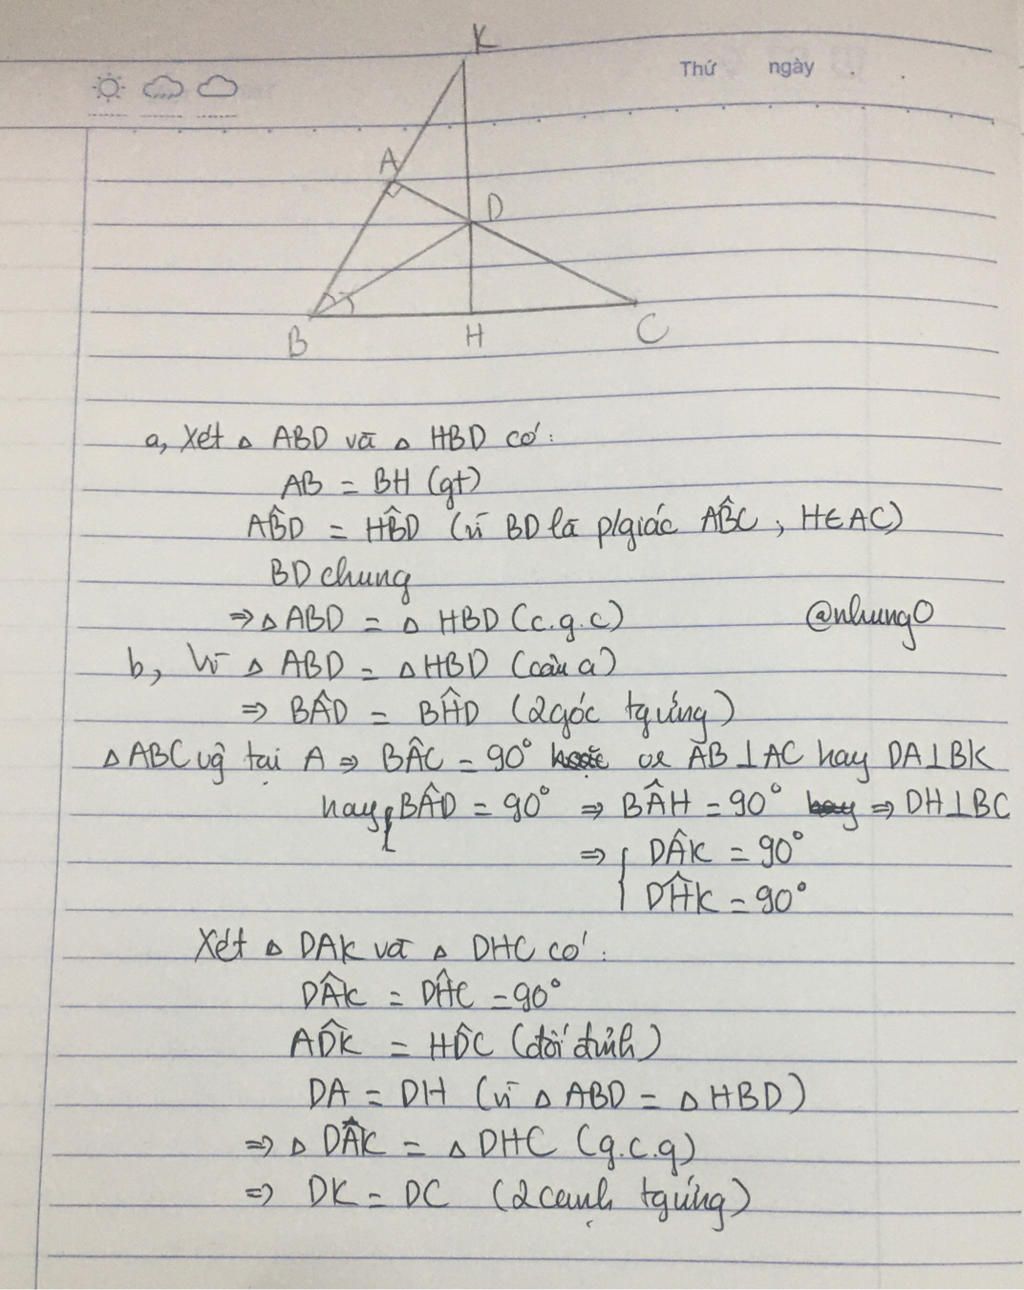 K
Thứ ngày
A
D
B H C
a, Xét △ ABD và △ HBD có:
AB = BH (gt)
AB̂D = HB̂D (vì BD là p/giác AB̂C, H∈AC)
BD chung
⇒ △ ABD = △ HBD (c.g.c)
@nhung0
b, Vì △ ABD = △ HBD (câu a)
⇒ BÂD = BĤD (2góc tg ứng)
△ ABC vg̃ tại A ⇒ BÂC = 90° AB⊥AC hay DA⊥BK
hay BÂD = 90° ⇒ BÂH = 90° ⇒ DH⊥BC
⇒ { DÂK = 90°
DĤK = 90°
Xét △ DAK và △ DHC có:
DÂK = DĤC = 90°
AD̂K = HD̂C (đối đỉnh)
DA = DH (vì △ ABD = △ HBD)
⇒ △ DÂK = △ DHC (g.c.g)
⇒ DK = DC (2 cạnh tg ứng)